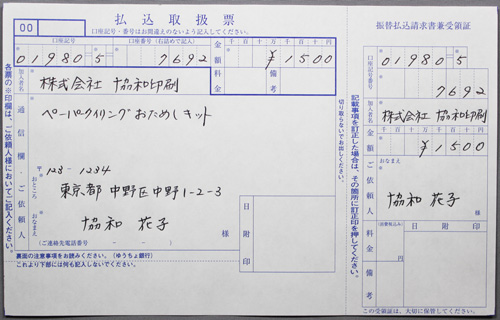 00
払込取扱票
口座記号・番号はお間違えのないよう記入してください。
口座記号
口座番号(右詰めで記入)
01980 5 7692
金額
千 百 十 万 千 百 十 円
¥1500
加入者名
株式会社 協和印刷
料金
備考
通信欄・ご依頼人
ペーパークイリングおためしキット
〒123-1234
おところ
東京都 中野区中野1-2-3
おなまえ
協和 花子
様
(ご連絡先電話番号 - - )
日附印
裏面の注意事項をお読みください。(ゆうちょ銀行)
これより下部には何も記入しないでください。
各票の※印欄は、ご依頼人様においてご記入ください。
切り取らないでお出しください。
記載事項を訂正した場合は、その箇所に訂正印を押してください。
振替払込請求書兼受領証
口座記号番号
01980 5
7692
加入者名
株式会社 協和印刷
金額
千 百 十 万 千 百 十 円
¥1500
ご依頼人
おなまえ
協和 花子
様
料金
備考
日附印
この受領証は、大切に保管してください。